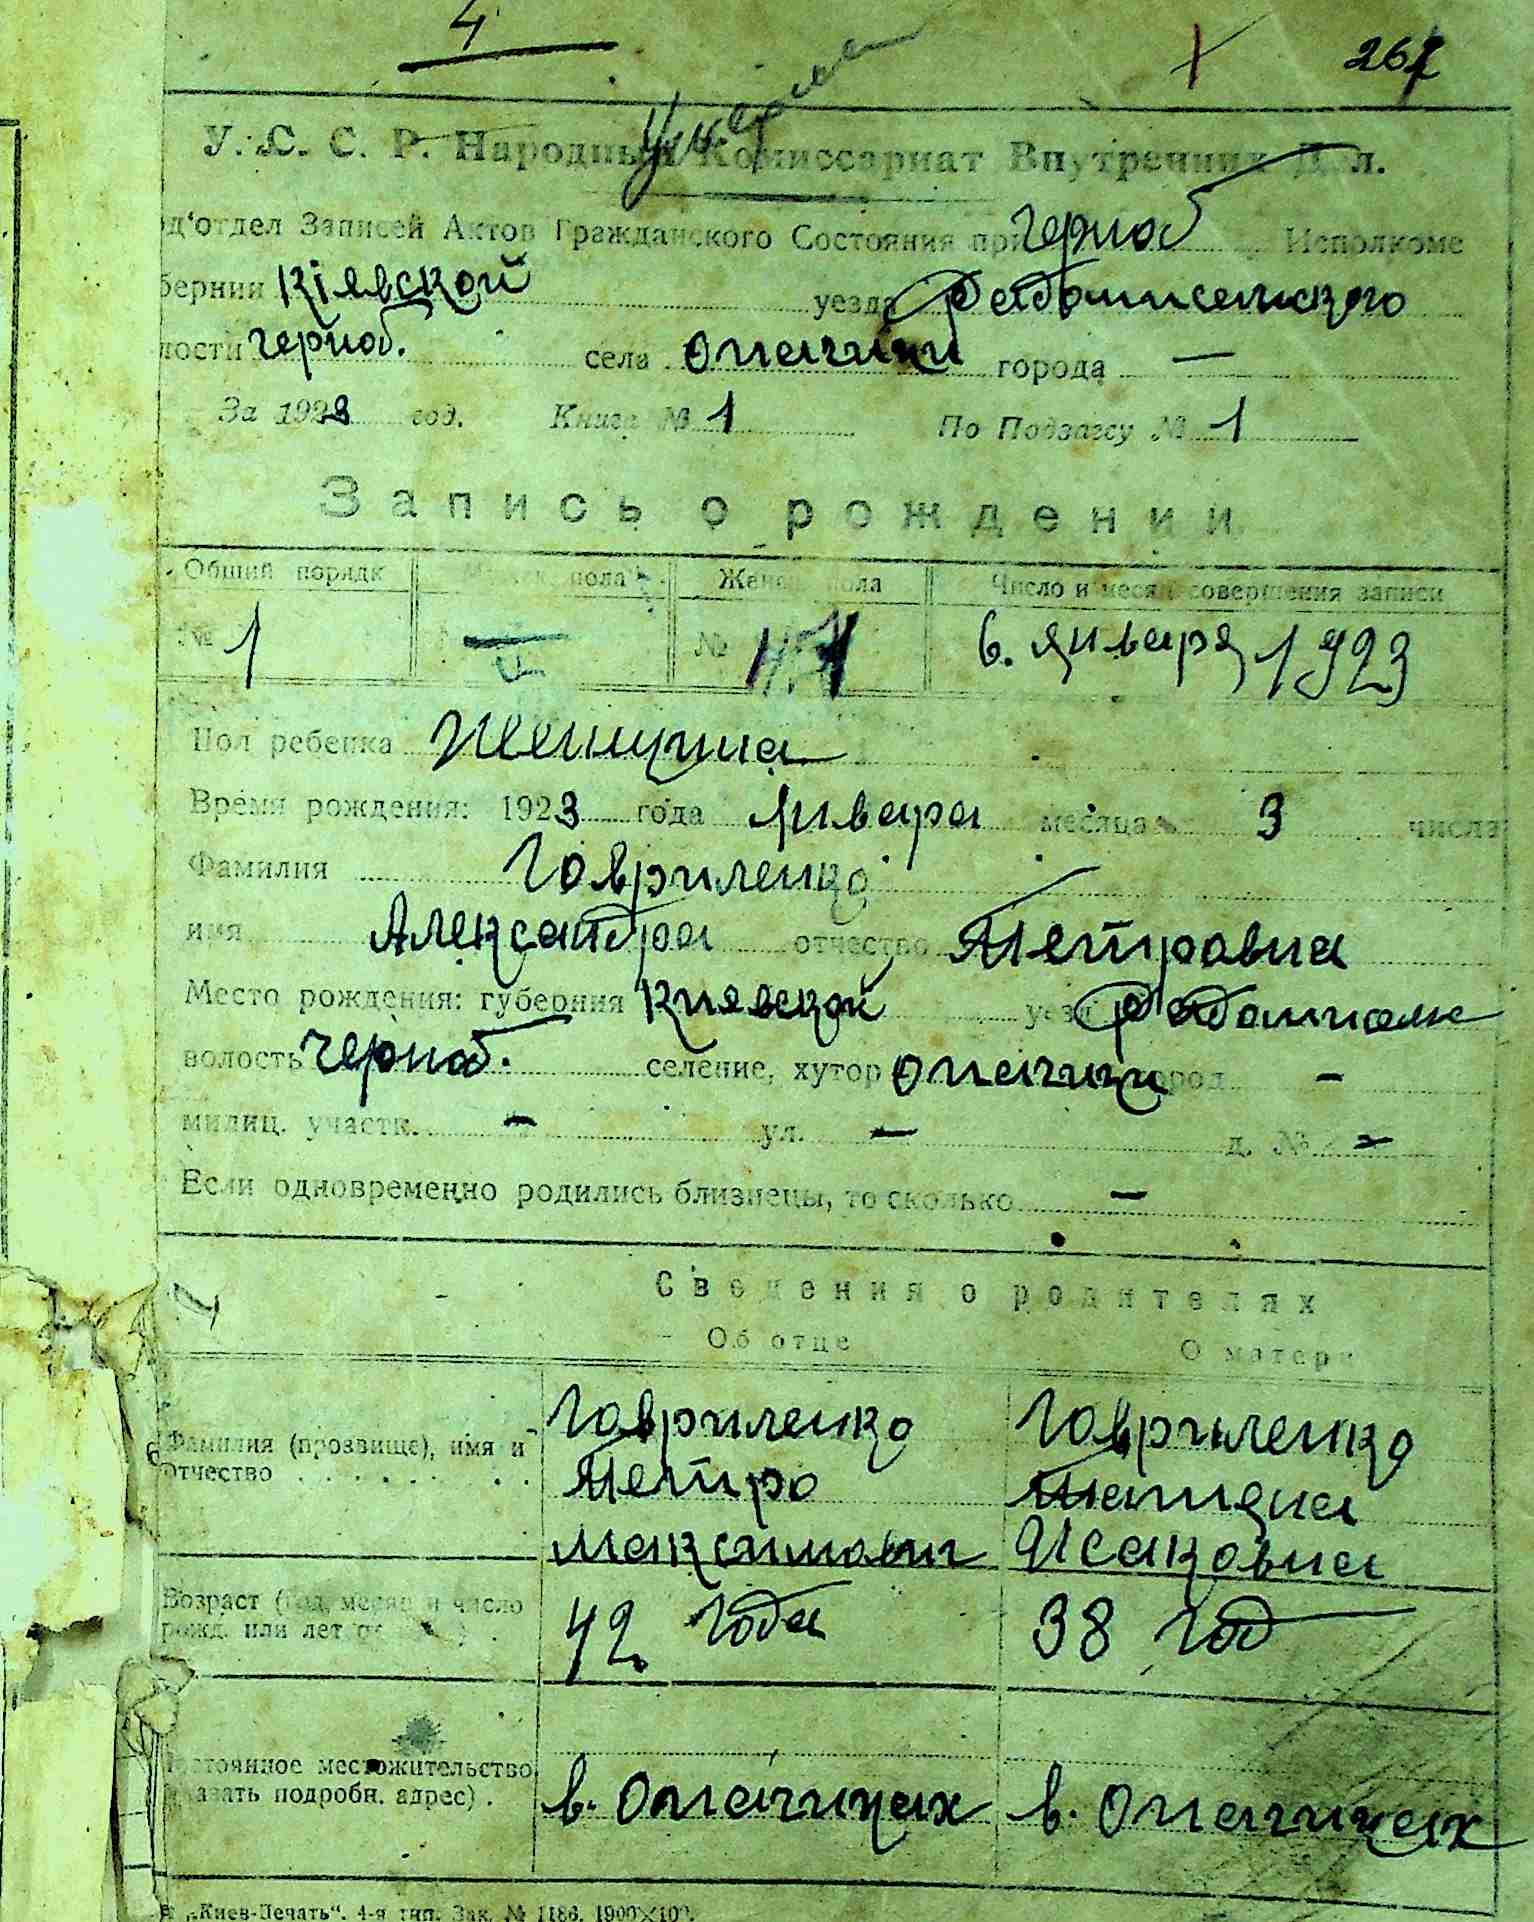 4
267
Умерла
У. С. С. Р. Народный Комиссариат Внутренних Дел.
од'отдел Записей Актов Гражданского Состояния при Черноб Исполкоме
бернии Кіевской уезда Радомисельского
лости Черноб. села Опачичи города —
За 1923 год. Книга № 1 По Подзагсу № 1
Запись о рождении
Общий порядк Мужск. пола Женск. пола Число и месяц совершения записи
№ 1 — № 1 6. января 1923
Пол ребенка Женщина
Время рождения: 1923 года января месяца 3 числа
Фамилия Гавриленко
имя Александра отчество Петровна
Место рождения: губерния Киевской уезд Радомисель
волость Черноб. селение, хутор Опачичи город -
милиц. участк. - ул. - д. № -
Если одновременно родились близнецы, то сколько -
Сведения о родителях
Об отце О матери
Фамилия (прозвище), имя и отчество . . . . . . . Гавриленко Гавриленко
Петро Татяна
Максимович Исаковна
Возраст (год, месяц и число 42 года 38 год
рожд. или лет
стоянное местожительство
казать подробн. адрес) . в. Опачичах в. Опачичах
"Киев-Печать". 4-я тип. Зак. № 1186. 1900×100.